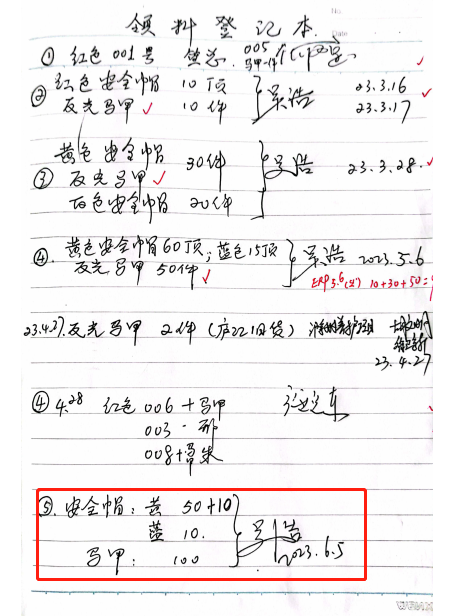 领料登记本
① 红色001号 005
马甲一件
② 红色安全帽 10顶 吴浩 23.3.16
反光马甲 ✓ 10件 23.3.17
黄色安全帽 30件 吴浩 23.3.28.
③ 反光马甲 ✓
白色安全帽 20件
④. 黄色安全帽60顶; 蓝色15顶 吴浩 2023.5.6
反光马甲 50件 ✓
ERP 3.6 10+30+50=
23.4.27. 反光马甲 2件
23.4.27
④ 4.28 红色 006+马甲
003 -
008+
⑤. 安全帽: 黄 50+10 吴浩
蓝 10.
马甲: 100 2023.6.5